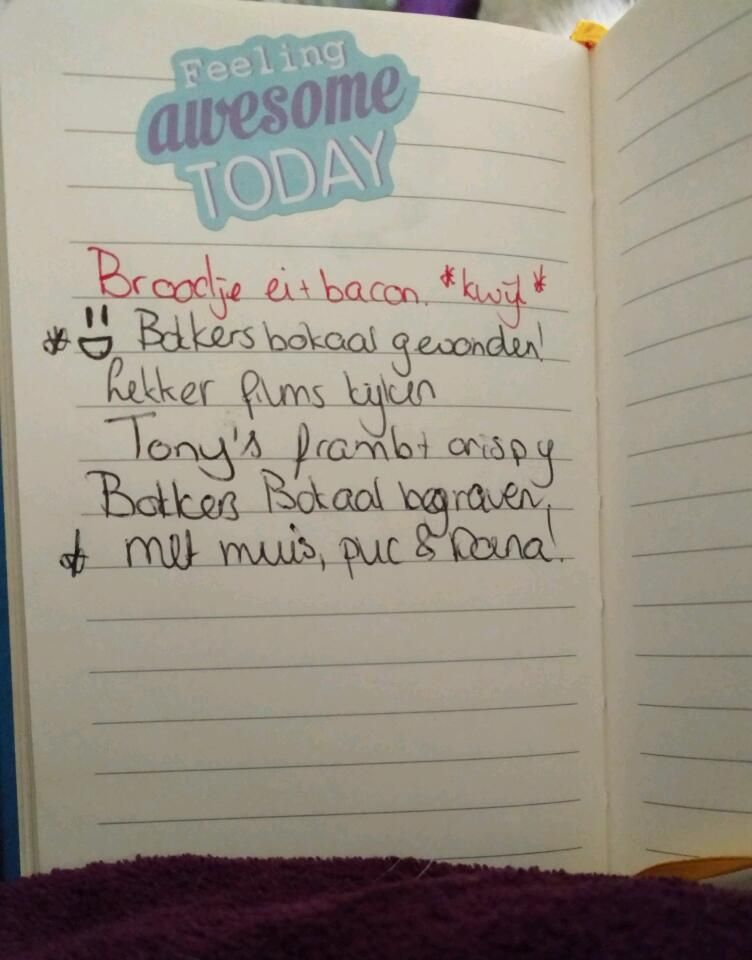 Feeling
awesome
TODAY
Broodje ei+bacon. *kwijl*
* Bokkers bokaal gewonden!
Lekker films kijken
Tony's framb+crispy
Bokkers Bokaal begraven,
* met muis, puc & Dana!